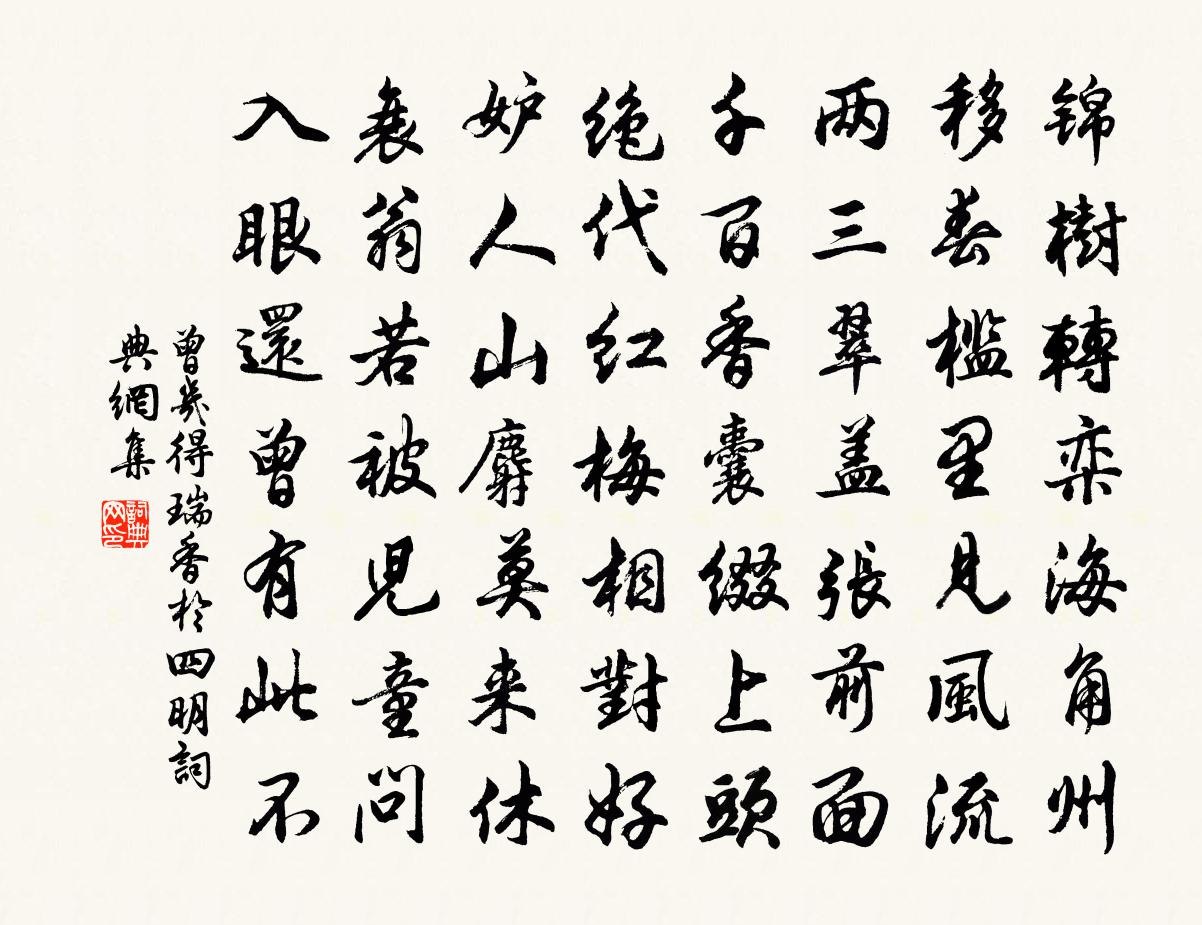 锦樹轉栾海角州
移春槛里見風流
两三翠盖張前面
千百香囊綴上頭
绝代红梅相對好
妒人山麝莫来休
衰翁若被児童問
入眼還曾有此不
曾幾得瑞香於四明詞
典網集
詞典网印